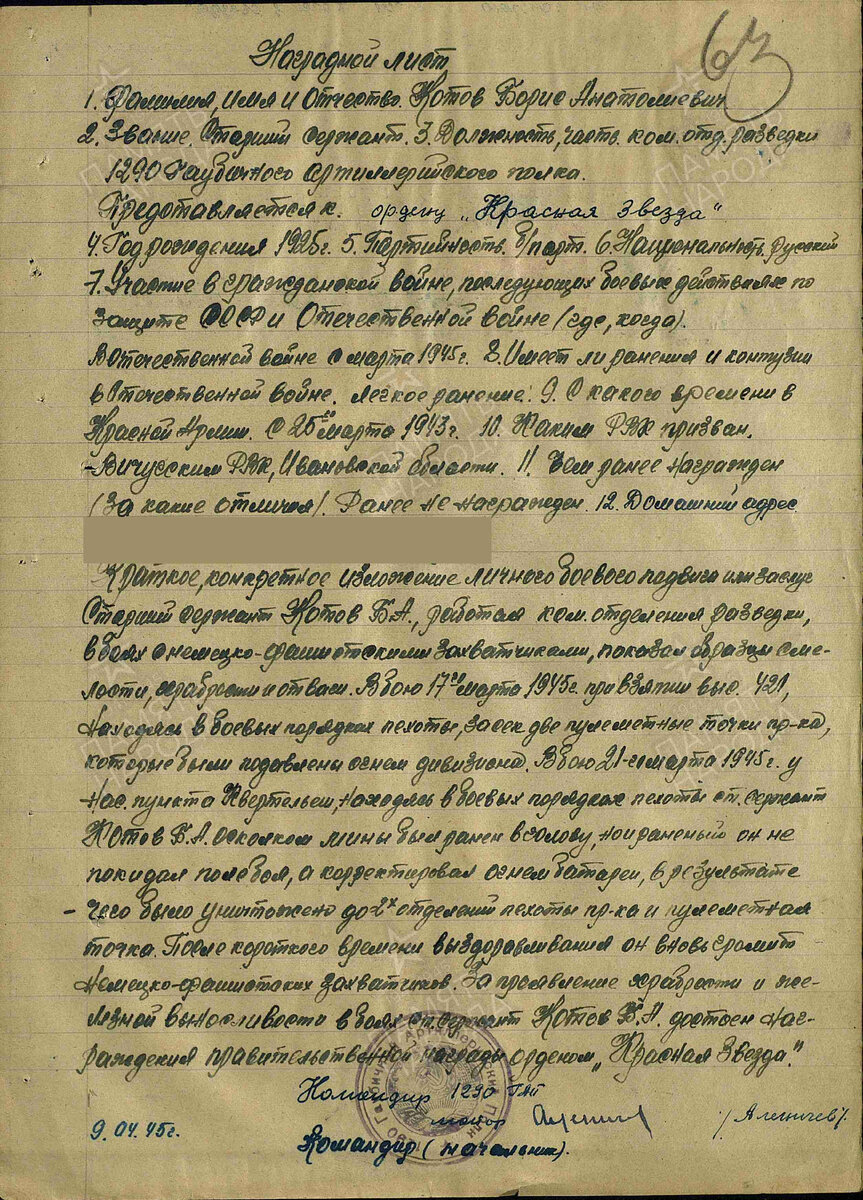 63
Наградной лист
1. Фамилия, имя и Отчество. Котов Борис Анатолиевич
2. Звание. Старший сержант. 3. Должность, часть. ком. отд. разведки
1290 Гаубичного артиллерийского полка.
Представляется к. ордену „Красная звезда"
4. Год рождения 1925г. 5. Партийность. б/парт. 6. Национальность. русский
7. Участие в гражданской войне, последующих боевых действиях по
защите СССР и Отечественной войне (где, когда).
В отечественной войне с марта 1945г. 8. Имеет ли ранения и контузии
в Отечественной войне. легкое ранение. 9. С какого времени в
Красной Армии. С 25го марта 1943г. 10. Каким РВК призван.
-Вичугским РВК, Ивановской области. 11. Чем ранее награжден
(за какие отличия). Ранее не награжден. 12. Домашний адрес
Краткое, конкретное изложение личного боевого подвига или заслуг
Старший сержант Котов Б.А., работая ком. отделения разведки,
в боях с немецко-фашистскими захватчиками, показал образцы сме-
лости, храбрости и отваги. В бою 17го марта 1945г. при взятии выс. 421,
находясь в боевых порядках пехоты, засек две пулеметные точки пр-ка,
которые были подавлены огнем дивизиона. В бою 21-го марта 1945г. у
нас. пункта находясь в боевых порядках пехоты ст. сержант
Котов Б.А. осколком мины был ранен в голову, но и раненый он не
покидал поле боя, а корректировал огнем батареи, в результате
чего было уничтожено до 2х отделений пехоты пр-ка и пулеметная
точка. После короткого времени выздоравливания он вновь громит
немецко-фашистских захватчиков. За проявление храбрости и же-
лезной выносливости в боях ст. сержант Котов Б.А. достоен наг-
раждения правительственной награды орденом „Красная Звезда".
Командир 1290 ГАП
майор
9.04.45г.
Командир (начальник).